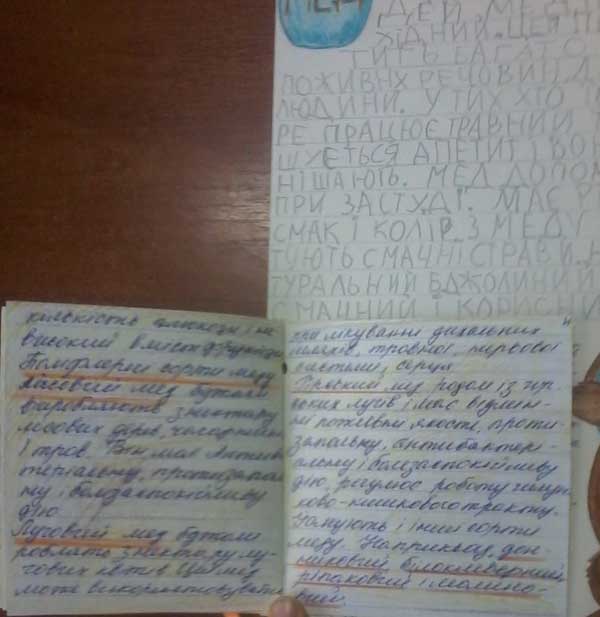 МЕД
ДЕЙ. МЕД Д
ХІДНИЙ. ЦЕЙ П
ТИТЬ БАГАТО
ПОЖИВНХ РЕЧОВИН Д
ЛЮДИНИ. У ТИХ ХТО
РЕ ПРАЦЮЄ ТРАВНИЙ
ШУЄТЬСЯ АПЕТИТ І ВОН
НІШАЮТЬ. МЕД ДОПОМ
ПРИ ЗАСТУДІ. МАЄ
СМАК І КОЛІР. З МЕДУ
ТУЮТЬ СМАЧНІ СТРАВИ. Н
ТУРАЛЬНИЙ БДЖОЛИНИЙ
СМАЧНИЙ І КОРИСНИ
кількість глюкози і не
високий вміст фруктози
Поліфлорні сорти меду
Лісовий мед бджоли
виробляють з нектару
лісових дерев, чагарників
і трав. Він має антибак
теріальну, протизапаль
ну і болезаспокійливу
дію.
Луговий мед бджоли
роблять з нектару лу-
гових квітів. Цей мед
можна використовувати
при лікуванні дихальних
шляхів, травної, нервової
системи, серця.
Гірський мед родом із гір-
ських лугів і має відмін-
ні поживні якості, проти-
запальну, антибактері-
альну і болезаспокійливу
дію, регулює роботу шлун-
ково-кишкового тракту.
Існують і інші сорти
меду. Наприклад, дон-
никовий, білоклеверний,
ріпаковий і малино-
вий.